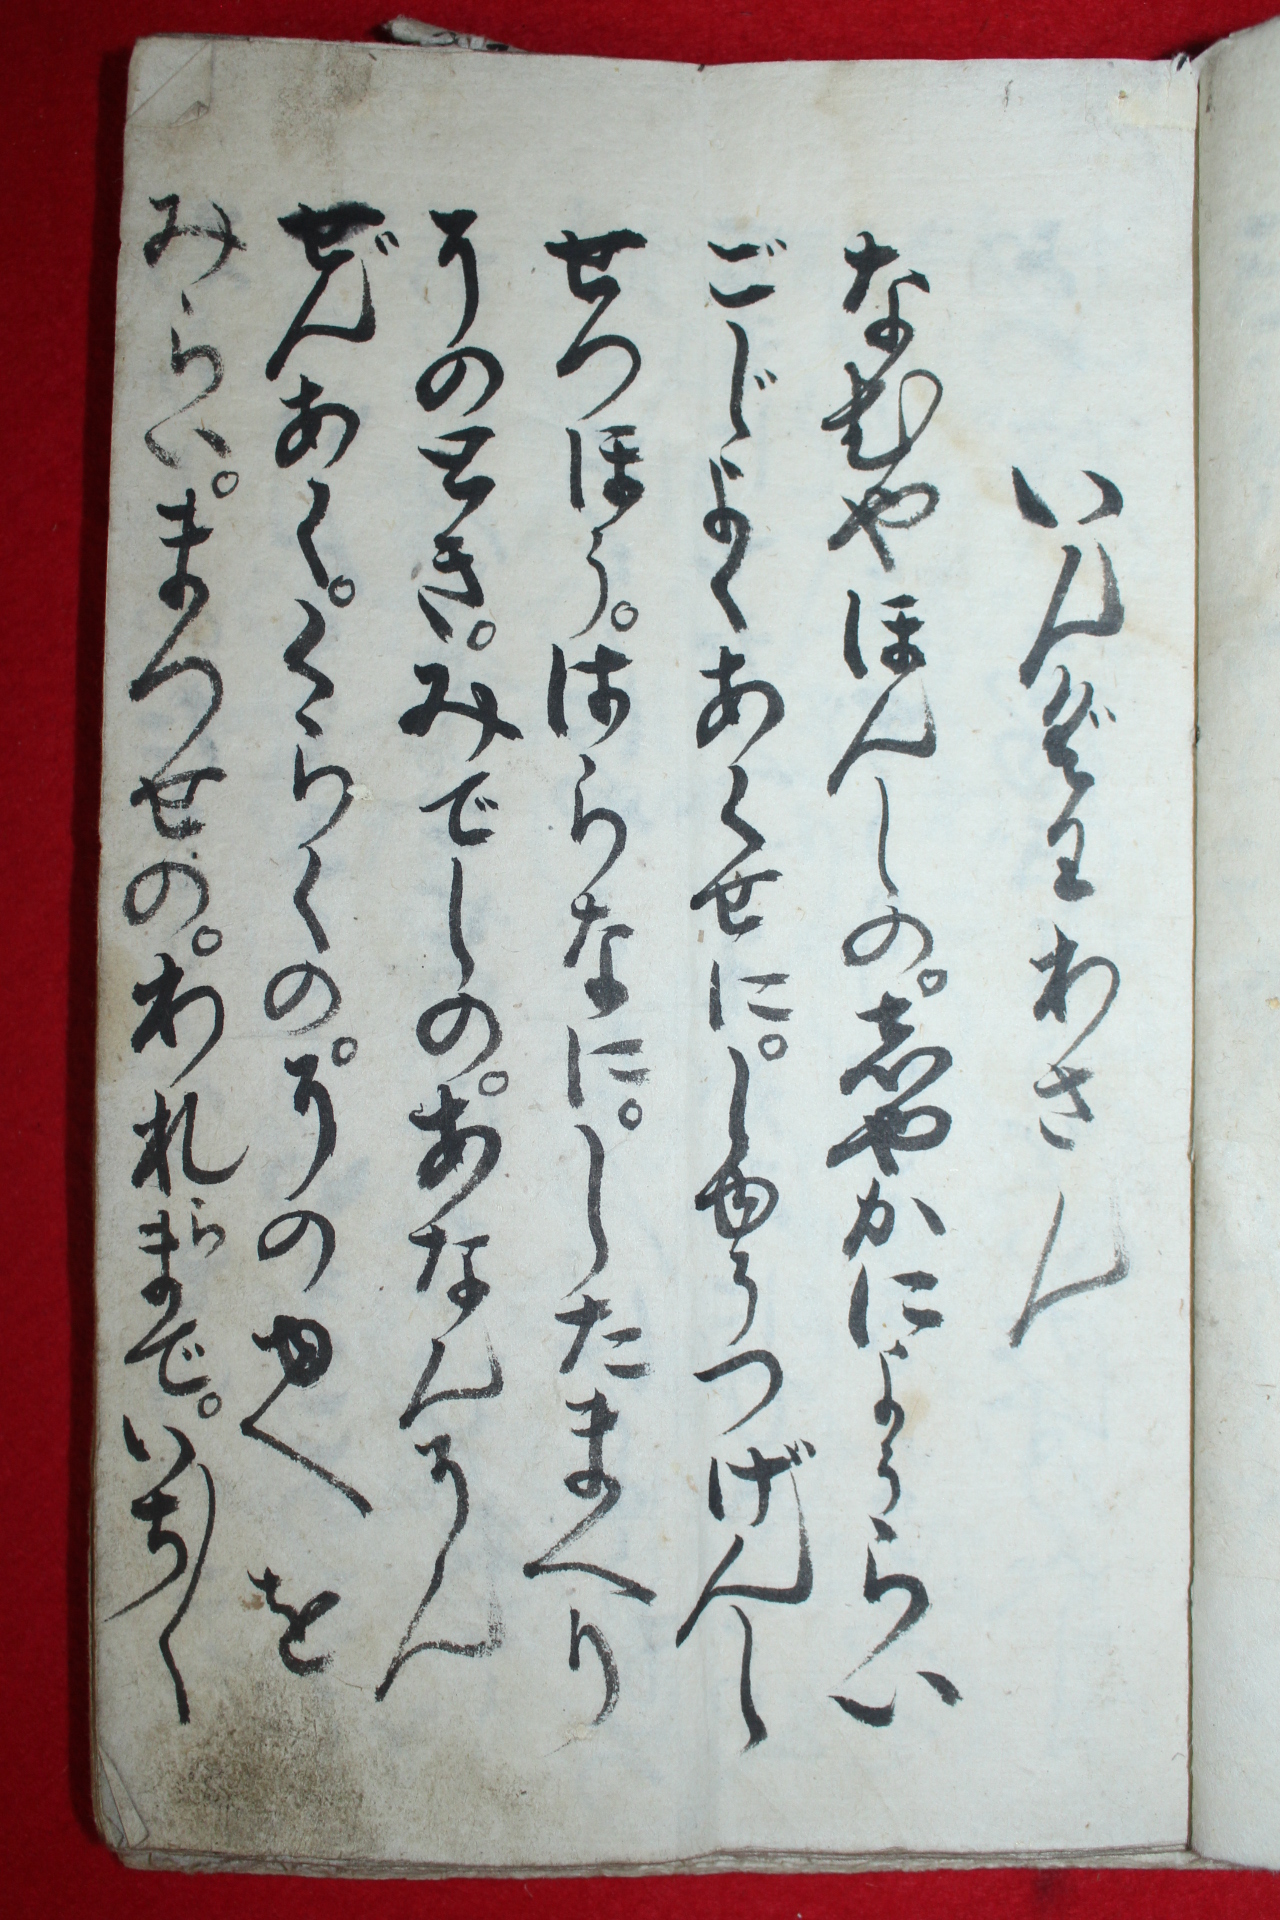 いんぐわわさん
なむやほんしの。志やかによらい
ごじよくあくせに。しゆつげんし
せつほう。はらなに。したまへり
そのとき。みでしの。あなんそん
ぜんあく。くらくの。そのゆへを
みらい。まつせの。われらまで。いち〳〵